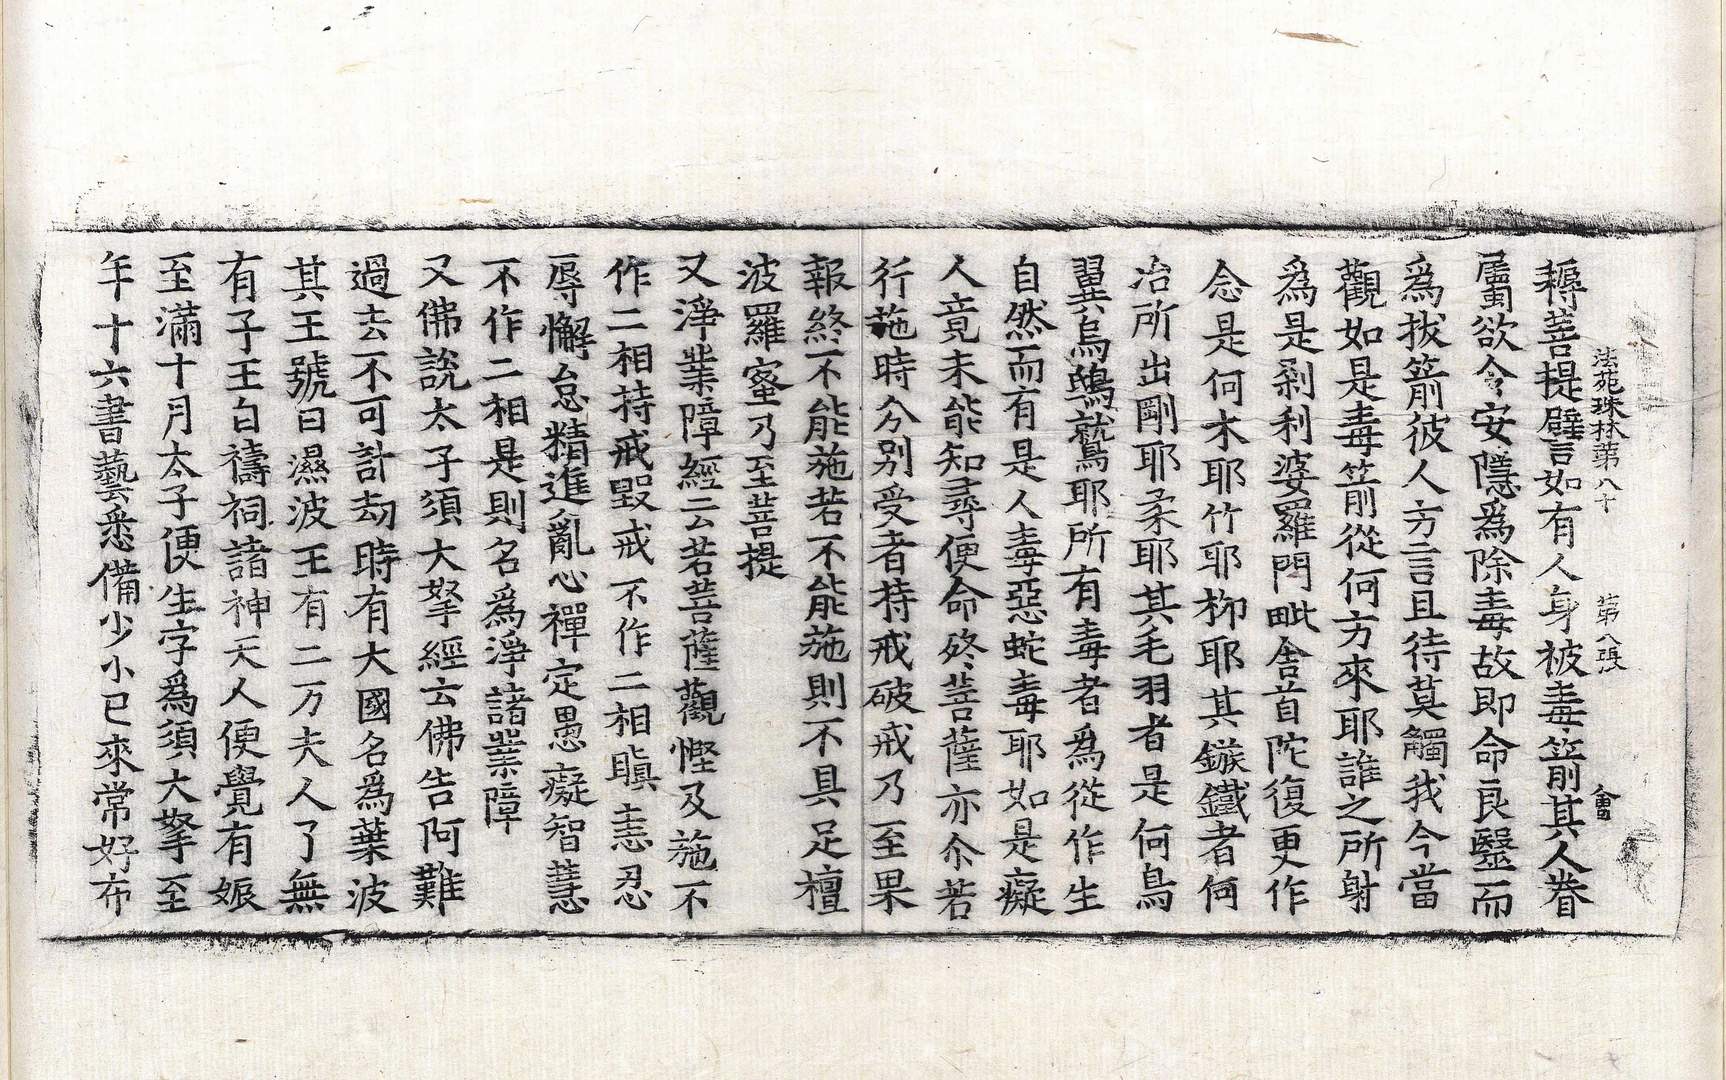 法苑珠林第八十　第八張　會
耨菩提譬如有人身被毒箭其人眷
屬欲令安隱爲除毒故即命良毉而
爲拔箭彼人方言且待莫觸我今當
觀如是毒箭從何方來耶誰之所射
爲是刹利婆羅門毗舍首陀復更作
念是何木耶竹耶栁耶其鏃鐵者何
冶所出剛耶柔耶其毛羽者是何鳥
翼烏鵄鷲耶所有毒者爲從作生
自然而有是人毒惡蛇毒耶如是癡
人竟未能知尋便命終菩薩亦尒若
行施時分別受者持戒破戒乃至果
報終不能施若不能施則不具足檀
波羅蜜乃至菩提
又淨業障經云若菩薩觀慳及施不
作二相持戒毀戒不作二相瞋恚忍
辱懈怠精進亂心禪定愚癡智慧
不作二相是則名爲淨諸業障
又佛說太子須大拏經云佛告阿難
過去不可計劫時有大國名爲葉波
其王號曰濕波王有二万夫人了無
有子王自禱祠諸神天人便覺有娠
至滿十月太子便生字爲須大拏至
年十六書藝悉備少小已來常好布